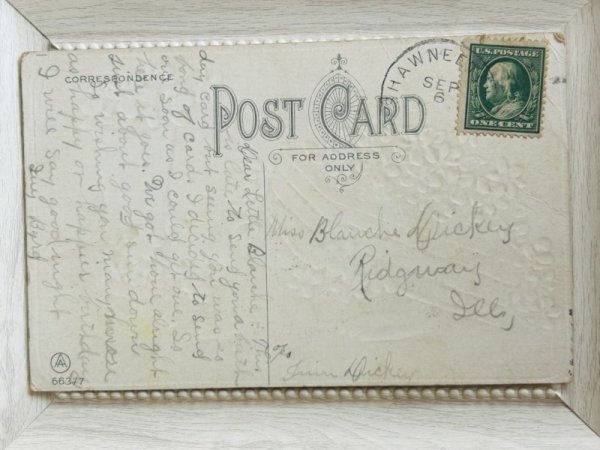 CORRESPONDENCE
POST CARD
FOR ADDRESS
ONLY
HAWNEE
SEP
6
U.S. POSTAGE
ONE CENT
Dear Little Blanche: This
is late to send you a birth
day card but seeing you was so
fong of cards I decided to send
or soon as I could get one. So
here it is. We got home alright
just about good sun down
So wishing you many more
as happy or happier birthday
I will say good night
Miss Blanche Dickey
Ridgway
Ills,
c/o
Dickey
AA
66377